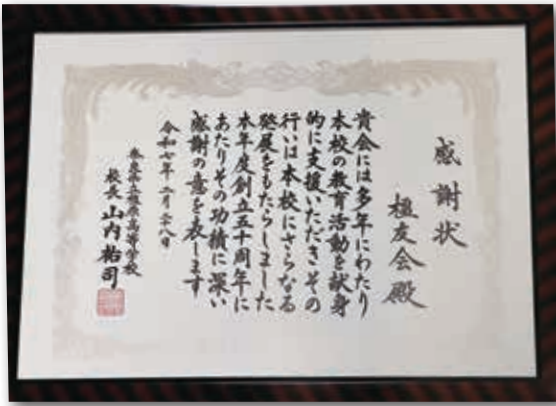 感謝状
楹友会殿
貴会には多年にわたり
本校の教育活動を献身
的に支援いただきその
行いは本校にさらなる
発展をもたらしました
本年度創立五十周年に
あたりその功績に深い
感謝の意を表します
令和七年二月二八日
高等学校
校長 山内祐司